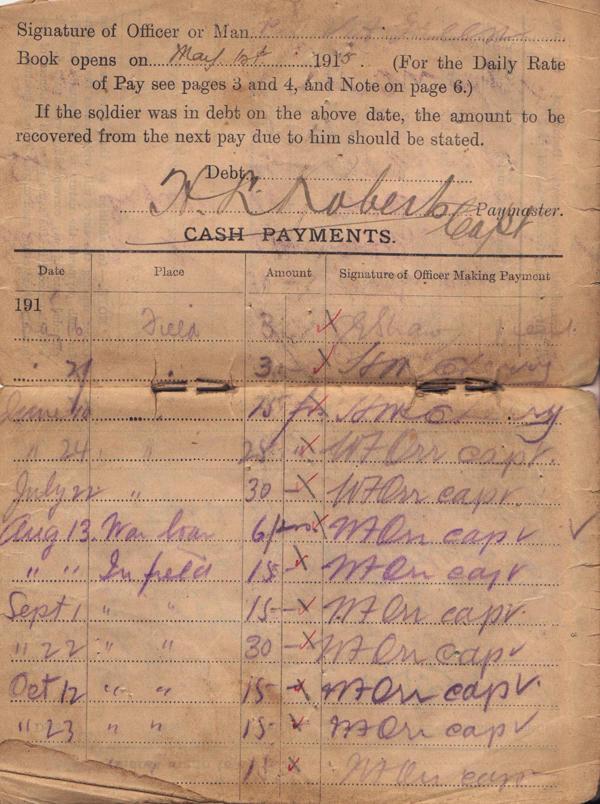 Signature of Officer or Man
Book opens on May 1st 1915. (For the Daily Rate
of Pay see pages 3 and 4, and Note on page 6.)
If the soldier was in debt on the above date, the amount to be
recovered from the next pay due to him should be stated.
Debt
H. L. Roberts Capt Paymaster.
CASH PAYMENTS.
Date Place Amount Signature of Officer Making Payment
191
16 Field 3
" 29 " 3
June 10 " 15 fr
" 24 " 25 " WFOrr capt.
July 22 " 30 – WFOrr capt.
Aug 13. War loan 6/ WFOrr capt
" " In field 15 – WFOrr capt
Sept 1 " " 15 – WFOrr capt.
" 22 " " 30 – WFOrr capt
Oct 12 " " 15 – WFOrr capt.
" 23 " " 15 – WFOrr capt
WFOrr capt